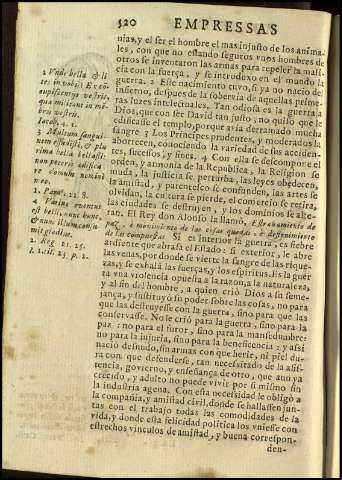 520 EMPRESSAS
nias, y el ser el hombre el mas injusto de los anima-
les, con que no estando seguros unos hombres de
otros se inventaron las armas para repeler la mali-
cia con la fuerça, y se introduxo en el mundo la
guerra. 2 Este nacimiento tuvo, si ya no nació del
infierno, despues de la sobervia de aquellas prime-
ras luzes intelectuales. Tan odiosa es la guerra a
Dios, que con ser David tan justo, no quiso que le
edificasse el templo, porque avia derramado mucha
sangre 3 Los Principes prudentes, y moderados la
aborrecen, conociendo la variedad de sus acciden-
tes, sucesos, y fines. 4 Con ella se descompone el
orden, y armonia de la Republica, la Religion se
muda, la justicia se perturba, las leyes obedecen,
la amistad, y parentesco se confunden, las artes se
olvidan, la cultura se pierde, el comercio se retira,
las ciudades se destruyen, y los dominios se alte-
ran. El Rey don Alonso la llamò, Estrañamiento de
paz, e movimiento de las cosas quedas, e destruimiento
de las compuestas Si es interior la guerra, es fiebre
ardiente que abrasa el Estado: si exterior, le abre
las venas, por donde se vierte la sangre de las rique-
zas, y se exhalá las fuerças, y los espiritus. Es la guer
ra una violencia opuesta a la razon, a la naturaleza,
y al fin del hombre, a quien criò Dios a su seme-
jança, y sustituyò su poder sobre las cosas, no para
que las destruyesse con la guerra, sino para que las
conservasse. No le criò para la guerra, sino para la
paz: no para el furor, sino para la mansedumbre:
no para la injuria, sino para la beneficencia: y assi
naciò desnudo, sin armas con que herir, ni piel du-
ra con que defenderse, tan necesitado de la asis-
tencia, govierno, y enseñança de otro, que aun ya
crecido, y adulto no puede vivir por si mismo sin
la industria agena. Con esta necesidad le obligò a
la compañia, y amistad civil, donde se hallassen jun-
tas con el trabajo todas las comodidades de la
vida, y donde esta felicidad politica los uniesse con
estrechos vinculos de amistad, y buena correspon-
den-
2 Unde bella & li
tes in vobis? Ex cō
cupiscentijs vestris,
qua militant in mē
bris vestris.
Iacob. 4. 1.
3 Multum sangui-
nem effudisti, & plu
rima bella bellasti:
non poteris edifica-
re domum nomini
meo.
1. Paral. 22. 8.
4
est belli, nunc hunc,
& nunc illum consu-
mit gladius.
2. Reg 11. 25.
l. 1. tit. 23 p. 2.